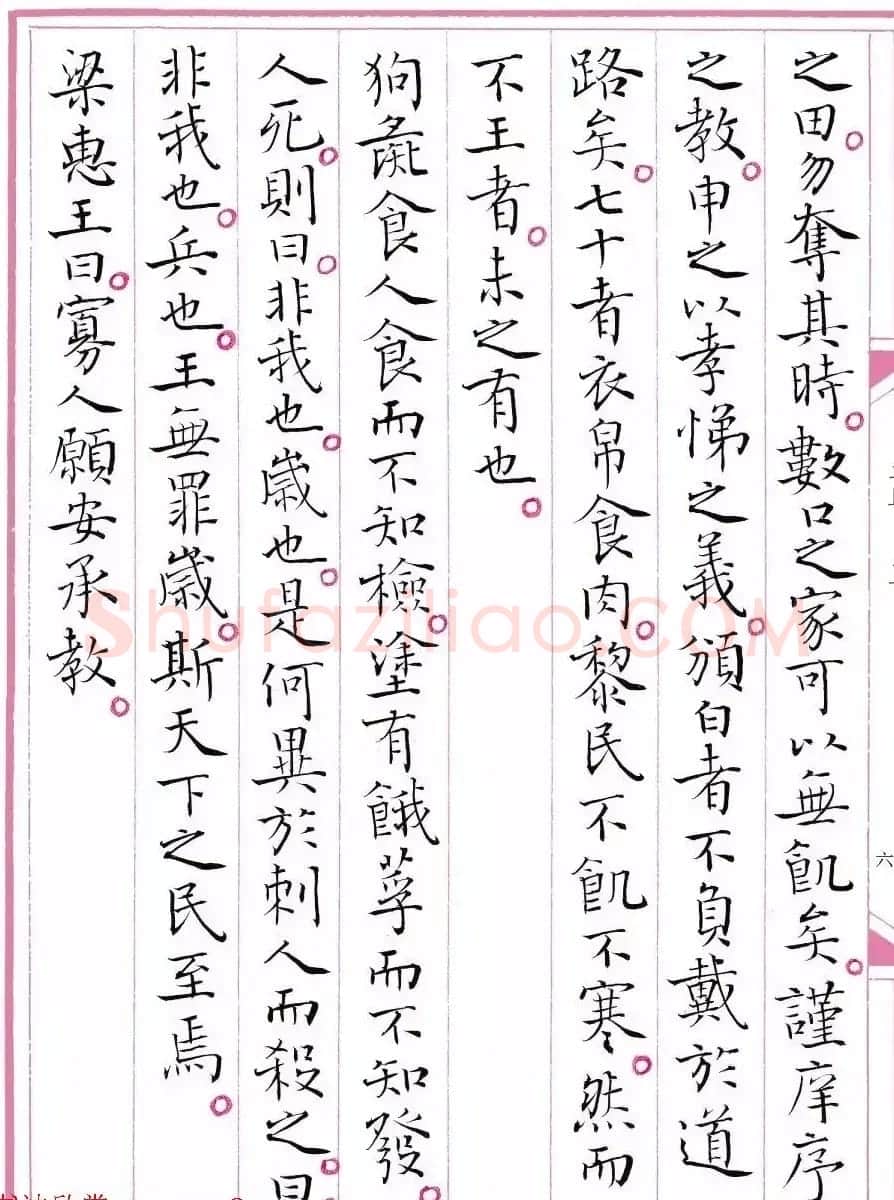 之田。勿奪其時。數口之家可以無飢矣。謹庠序
之教。申之以孝悌之義。頒白者不負戴於道
路矣。七十者衣帛食肉。黎民不飢不寒。然而
不王者。未之有也。
狗彘食人食而不知檢。塗有餓莩而不知發。
人死。則曰。非我也。歲也。是何異於刺人而殺之。曰
非我也。兵也。王無罪歲。斯天下之民至焉。
梁惠王曰。寡人願安承教。
六
Shufaziliao.COM